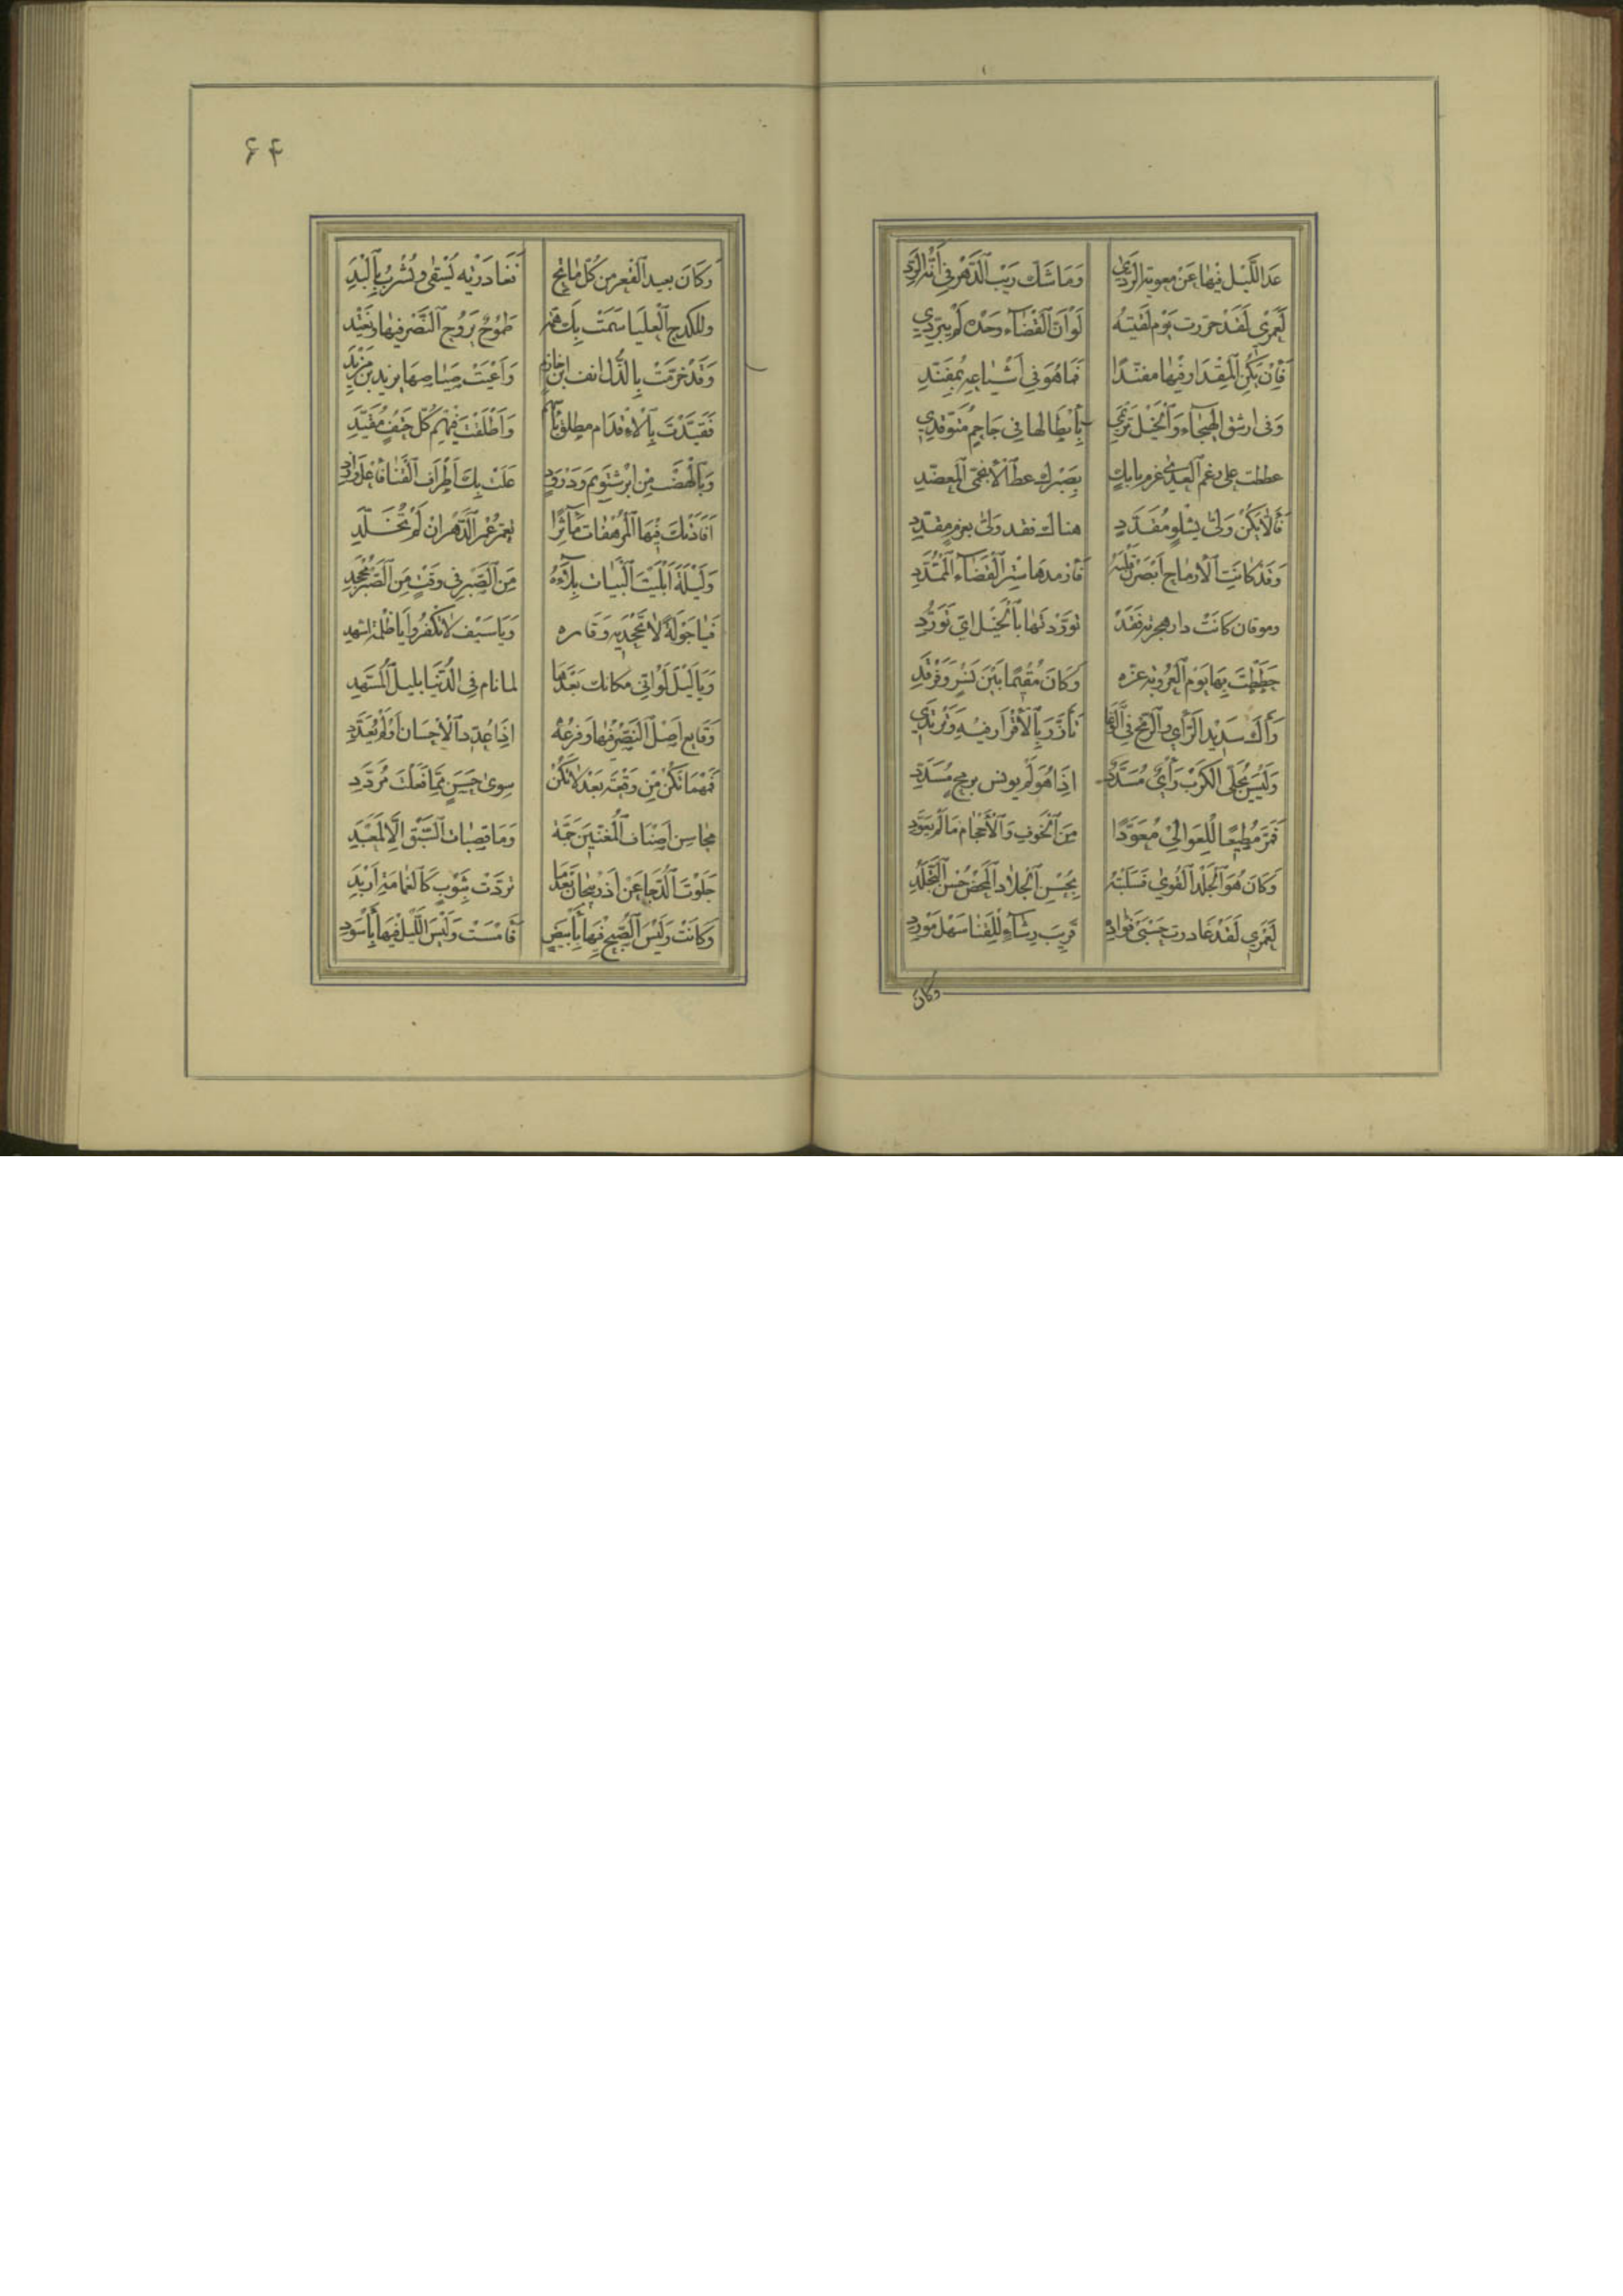 عَدَا اللَّيْل فيهَا عَنْ معوية الرَّدى وَمَا شَكَّ رَيْبُ الدَّهْرِ فِي أَنَّهُ الرَّدِي
لَعَمْرِي لَقَدْ حررت يَوْم لَقيتهُ لَوْ أَنَّ القَضَاءَ وَحْدَهُ لَمْ يُبَرَّدِي
فَإِنْ يَكُنِ المِقْدَار فيهَا مفنّدًا فَمَا هُوَ فِي أَشْيَاعِهِ بِمُفَنَّدِ
وَفى ارشق الهَيْجَاءِ وَالخَيْل تَرْتَمِي بِأَبْطَالهَا في جَاحِمٍ مُتَوَقِّدِي
عططت على رغم العِدَى عزم بابكٍ بِصَبْرِكَ عطّ الأَتْحَمِي المعضّدِ
فَإِلّا يَكُنْ وَلَّى بِشِلْوٍ مُقَدَّدٍ هناك فقد وَلَّى بعزمٍ مقدّدِ
وَقَدْ كَانَتِ الأَرْمَاح أَبْصَرْنَ قَلْبَهُ فَأَرْمدهَا سِتْر القَضَاء المُمَدَّدِ
وموقان كَانَتْ دار هجرته فَقَدْ تَوَرَّدْتَهَا بِالخَيْل أيّ تَوَرُّدِ
حَطَطْتَ بِهَا يَوْم العَرُوبَة عزّه وَكَانَ مُقِيمًا بَيْنَ نَسْرٍ وَفَرْقَدِ
رَآكَ سَدِيد الرَّأْيِ وَالرُّمْحِ فِي الوَغَا تَأَزَّرَ بِالأَقْرَار فيهِ وَتَرْتَدِي
وَلَيْسَ يُجَلِّي الكَرْبَ رَأْيٌ مُسَدَّدٌ إِذَا هُوَ لَمْ يونس برمحٍ مُسَدَّدِ
فَمَرَّ مُطِيعًا لِلْعَوَالِي مُعَوَّدًا مِنَ الخَوْفِ وَالأَحْجَام مَا لَمْ يُعَوَّدِ
وَكَانَ هُوَ الجَلْد القُوي فَسَلَبْتَهُ بِحُسْنِ الجِلَاد المَحْض حُسْنَ التَّجَلُّدِ
لَعَمْرِي لَقَدْ غَادرت حِسْيَ فُؤَادِهِ قَرِيبَ رِشَاءٍ لِلْقَنَا سَهْلَ مَوْرِدِ
وكان
۶۴
وَكَانَ بعيد القَعْر من كُلّ مَاتِحٍ فَغَادَرْتَه يُسْقَى وَيُشْرَبُ بِالْيَدِ
وللكذج العُلْيَا سَمَتْ بِكَ همّة طَمُوحٌ يَرُوح النَّصْر فيهَا وَيَغْتَدِ
وَقَدْ خَزَمَتْ بِالذُّلّ انف ابْن خَازِمٍ وَأَعْيَتْ صَيَاصِيهَا يزيد بن مَزْيَدِ
فَقَيَّدْتَ بِالْأَقْدَام مطلق بَأْسِهِمْ وَأَطْلَقْتَ فيهِمْ كُلّ حَتْفٍ مُقَيَّدِ
وَبِالْهَضْبِ مِنْ ابْرَشْتَوِيم وَدَرْوَذٍ عَلَتْ بِكَ أَطْرَافُ القَنَا فَاعْلُ وَازْدَدِ
أَفَادَتْكَ فِيهَا المُرْهَفَات مَآثِرًا تُعَمَّرُ عُمْر الدَّهْر ان لَمْ تُخَلَّدِ
وَلَيْلَةَ أَبْلَيْتَ البَيَات بَلَاءَهُ مِنَ الصَّبْرِ في وَقْتٍ مِنَ الصَّبْر مُجْحِدِ
فَيَا جَوْلَةً لَا تَجْحَدِيهِ وَقَاره وَيَا سَيْف لَا تَكْفُرْ وَيَا ظُلْمَة اشهدِ
وَيَا لَيْلَ لَوْ أَنّي مكانك بَعْدَهَا لما نام فِي الدُّنْيَا بليل المُسَهَّدِ
وَقَايع أَصْل النَّصْرِ فيهَا وَفَرْعُهُ إِذَا عُدِّدَ الأَحْسَان أَوْ لَمْ يُعَدَّدِ
فَمَهْمَا تَكُنْ مِنْ وَقْعَةٍ بَعْدُ لَا تَكُنْ سِوى حَسَنٍ مِمَّا فَعَلْتَ مُرَدَّدِ
مَحَاسِن أَصْنَاف المُغَنِّينَ جَمَّةٌ وَمَا قَصَبَات السَّبْقِ إِلَّا لِمَعْبَدِ
جَلَوْتَ الدُّجَا عَنْ أَذْرَبِيجَانَ بَعْدَمَا تَرَدَّتْ بِثَوْبٍ كَالْغَمَامَةِ أَرْبَدِ
وَكَانَتْ وَلَيْسَ الصُّبْح فِيهَا بِأَبْيَضٍ فَأَمْسَتْ وَلَيْسَ اللَّيْل فِيهَا بِأَسْوَدِ